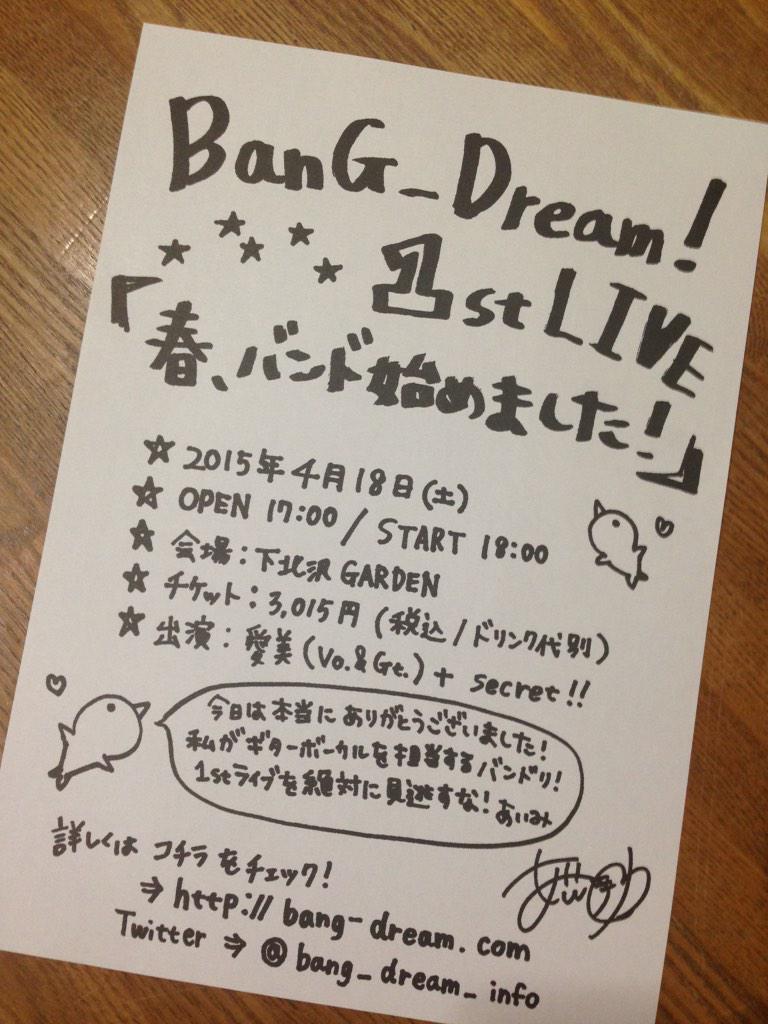 BanG_Dream!
★★★★★ 1st LIVE
「春、バンド始めました!」
☆ 2015年4月18日(土)
☆ OPEN 17:00 / START 18:00
☆ 会場:下北沢 GARDEN
☆ チケット:3,015円 (税込/ドリンク代別)
☆ 出演:愛美(Vo.&Gt.) + secret!!
今日は本当にありがとうございました!
私がギターボーカルを担当するバンドリ!
1stライブを絶対に見逃すな! あいみ
詳しくは コチラをチェック!
⇒ http://bang-dream.com
Twitter ⇒ @bang_dream_info